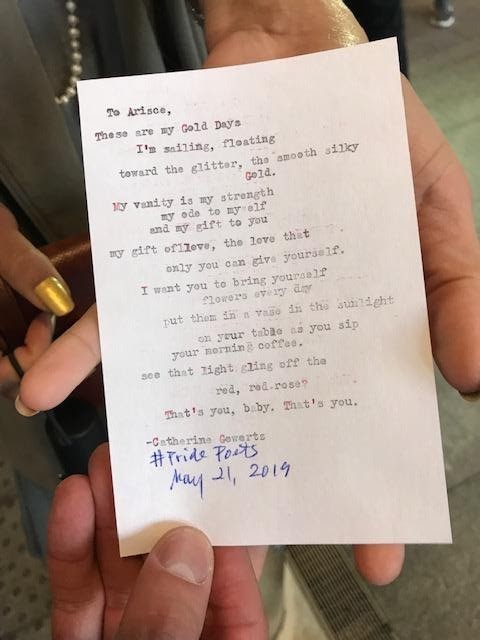 To Arisce,
These are my Gold Days
I'm sailing, floating
toward the glitter, the smooth silky
Gold.
My vanity is my strength
my ode to my elf
and my gift to you
my gift oflleve, the love that
only you can give yourself.
I want you to bring yourself
flowers every day
put them in a vase in the sunlight
on your table as you sip
your morning coffee.
see that light gling off the
red, red rose?
That's you, baby. That's you.
-Catherine Gewertz
#Pride Poets
May 21, 2019